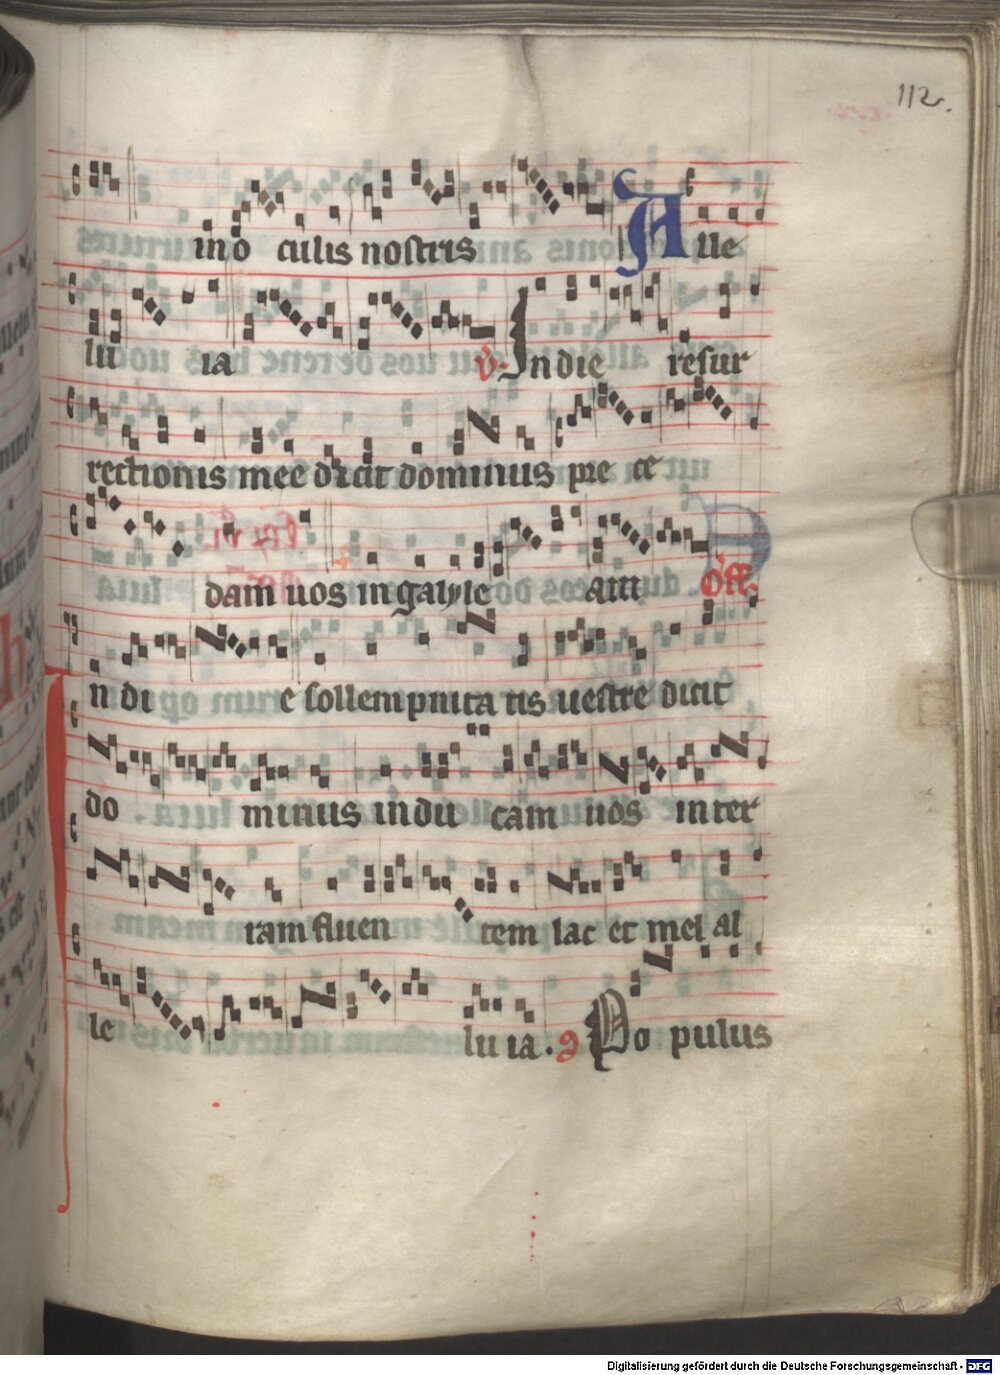 112
in o culis nostris Alle
lu ia v. In die resur
rectionis mee dicit dominus pre ce
dam uos in galyle am off.
In di e sollempnita tis uestre dicit
do minus in du cam uos in ter
ram fluen tem lac et mel al
le lu ia. Po pulus
Digitalisierung gefördert durch die Deutsche Forschungsgemeinschaft - DFG